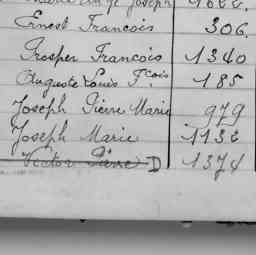 Joseph 1622.
Ernest Francois 306.
Prosper Francois 1340
Auguste Louis Fcois. 185
Joseph Pierre Marie 979
Joseph Marie 1132
Victor Pierre D 1374